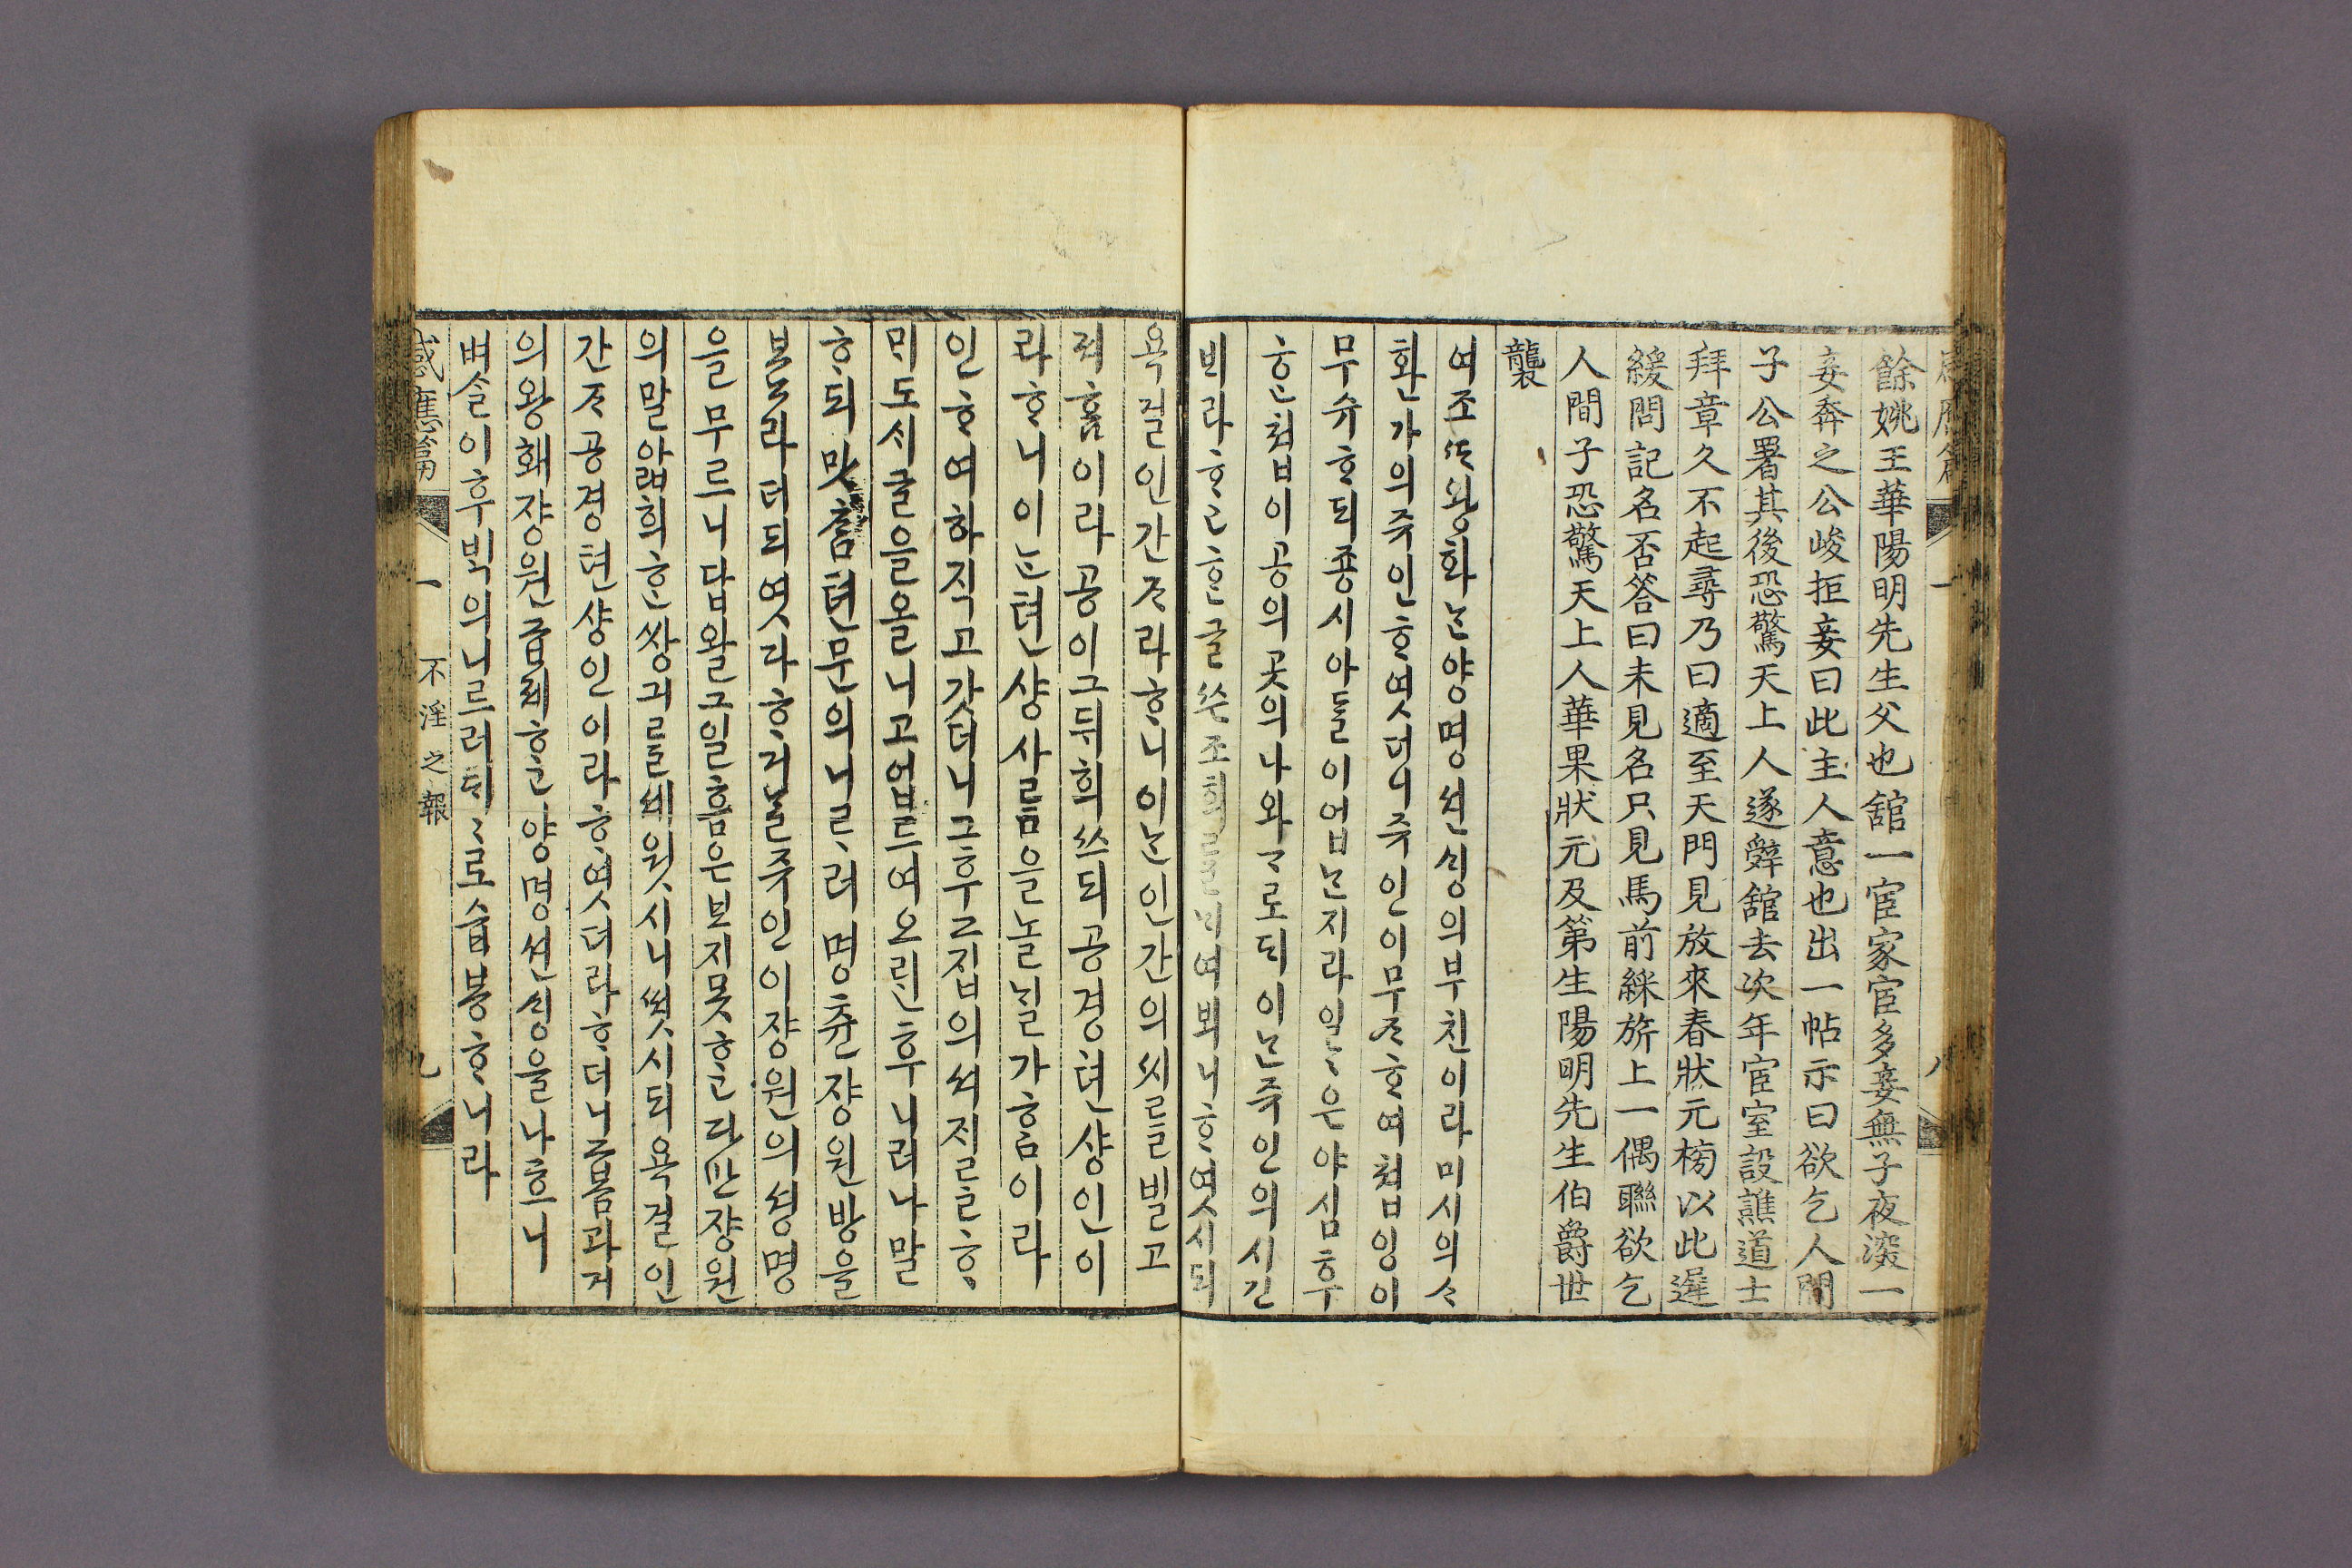 感應篇 一 八
餘姚王華陽明先生父也舘一宦家宦多妾無子夜深一
妾奔之公峻拒妾曰此主人意也出一帖示曰欲乞人間
子公署其後恐驚天上人遂辭舘去次年宦室設譙道士
拜章久不起尋乃曰適至天門見放來春狀元榜以此遲
緩問記名否答曰未見名只見馬前綵旂上一偶聯欲乞
人間子恐驚天上人華果狀元及第生陽明先生伯爵世
襲
여조ᄯᅡ왕화ᄂᆞᆫ양명션ᄉᆡᆼ의부친이라미시의ᄉᆞ
환가의쥬인ᄒᆞ엿더니쥬인이무ᄌᆞᄒᆞ여쳡잉이
무슈ᄒᆞ되죵시아ᄃᆞᆯ이업ᄂᆞᆫ지라일〻은야심후
ᄒᆞᆫ쳡이공의곳의나와ᄀᆞ로되이ᄂᆞᆫ쥬인의시긴
ᄇᆡ라ᄒᆞ고ᄒᆞᆫ글쓴조희ᄅᆞᆯᄂᆡ여뵈니ᄒᆞ엿시되
욕걸인간ᄌᆞ라ᄒᆞ니이ᄂᆞᆫ인간의씨ᄅᆞᆯ빌고
져홈이라공이그뒤희쓰되공경텬샹인이
라ᄒᆞ니이ᄂᆞᆫ텬샹사ᄅᆞᆷ을놀ᄂᆡᆯ가홈이라
인ᄒᆞ여하직고갓더니그후그집의셔ᄌᆡᄅᆞᆯᄒᆞ
ᄆᆡ도ᄉᆡ글을올니고업드여오ᄅᆡᆫ후니러나말
ᄒᆞ되맛ᄎᆞᆷ텬문의니ᄅᆞ러명츈쟝원방을
보노라더듸엿라ᄒᆞ거ᄂᆞᆯ쥬인이쟝원의셩명
을무르니답왈그일홈은보지못ᄒᆞ고다만쟝원
의말압희ᄒᆞᆫ쌍긔ᄅᆞᆯ셰윗시니썻시되욕걸인
간ᄌᆞ공경텬샹인이라ᄒᆞ엿더라ᄒᆞ더니봄과거
의왕홰쟝원급졔ᄒᆞ고양명션ᄉᆡᆼ을나흐니
벼슬이후ᄇᆡᆨ의니르러ᄃᆡ〻로습봉ᄒᆞ니라
感應篇 一 不淫之報 九